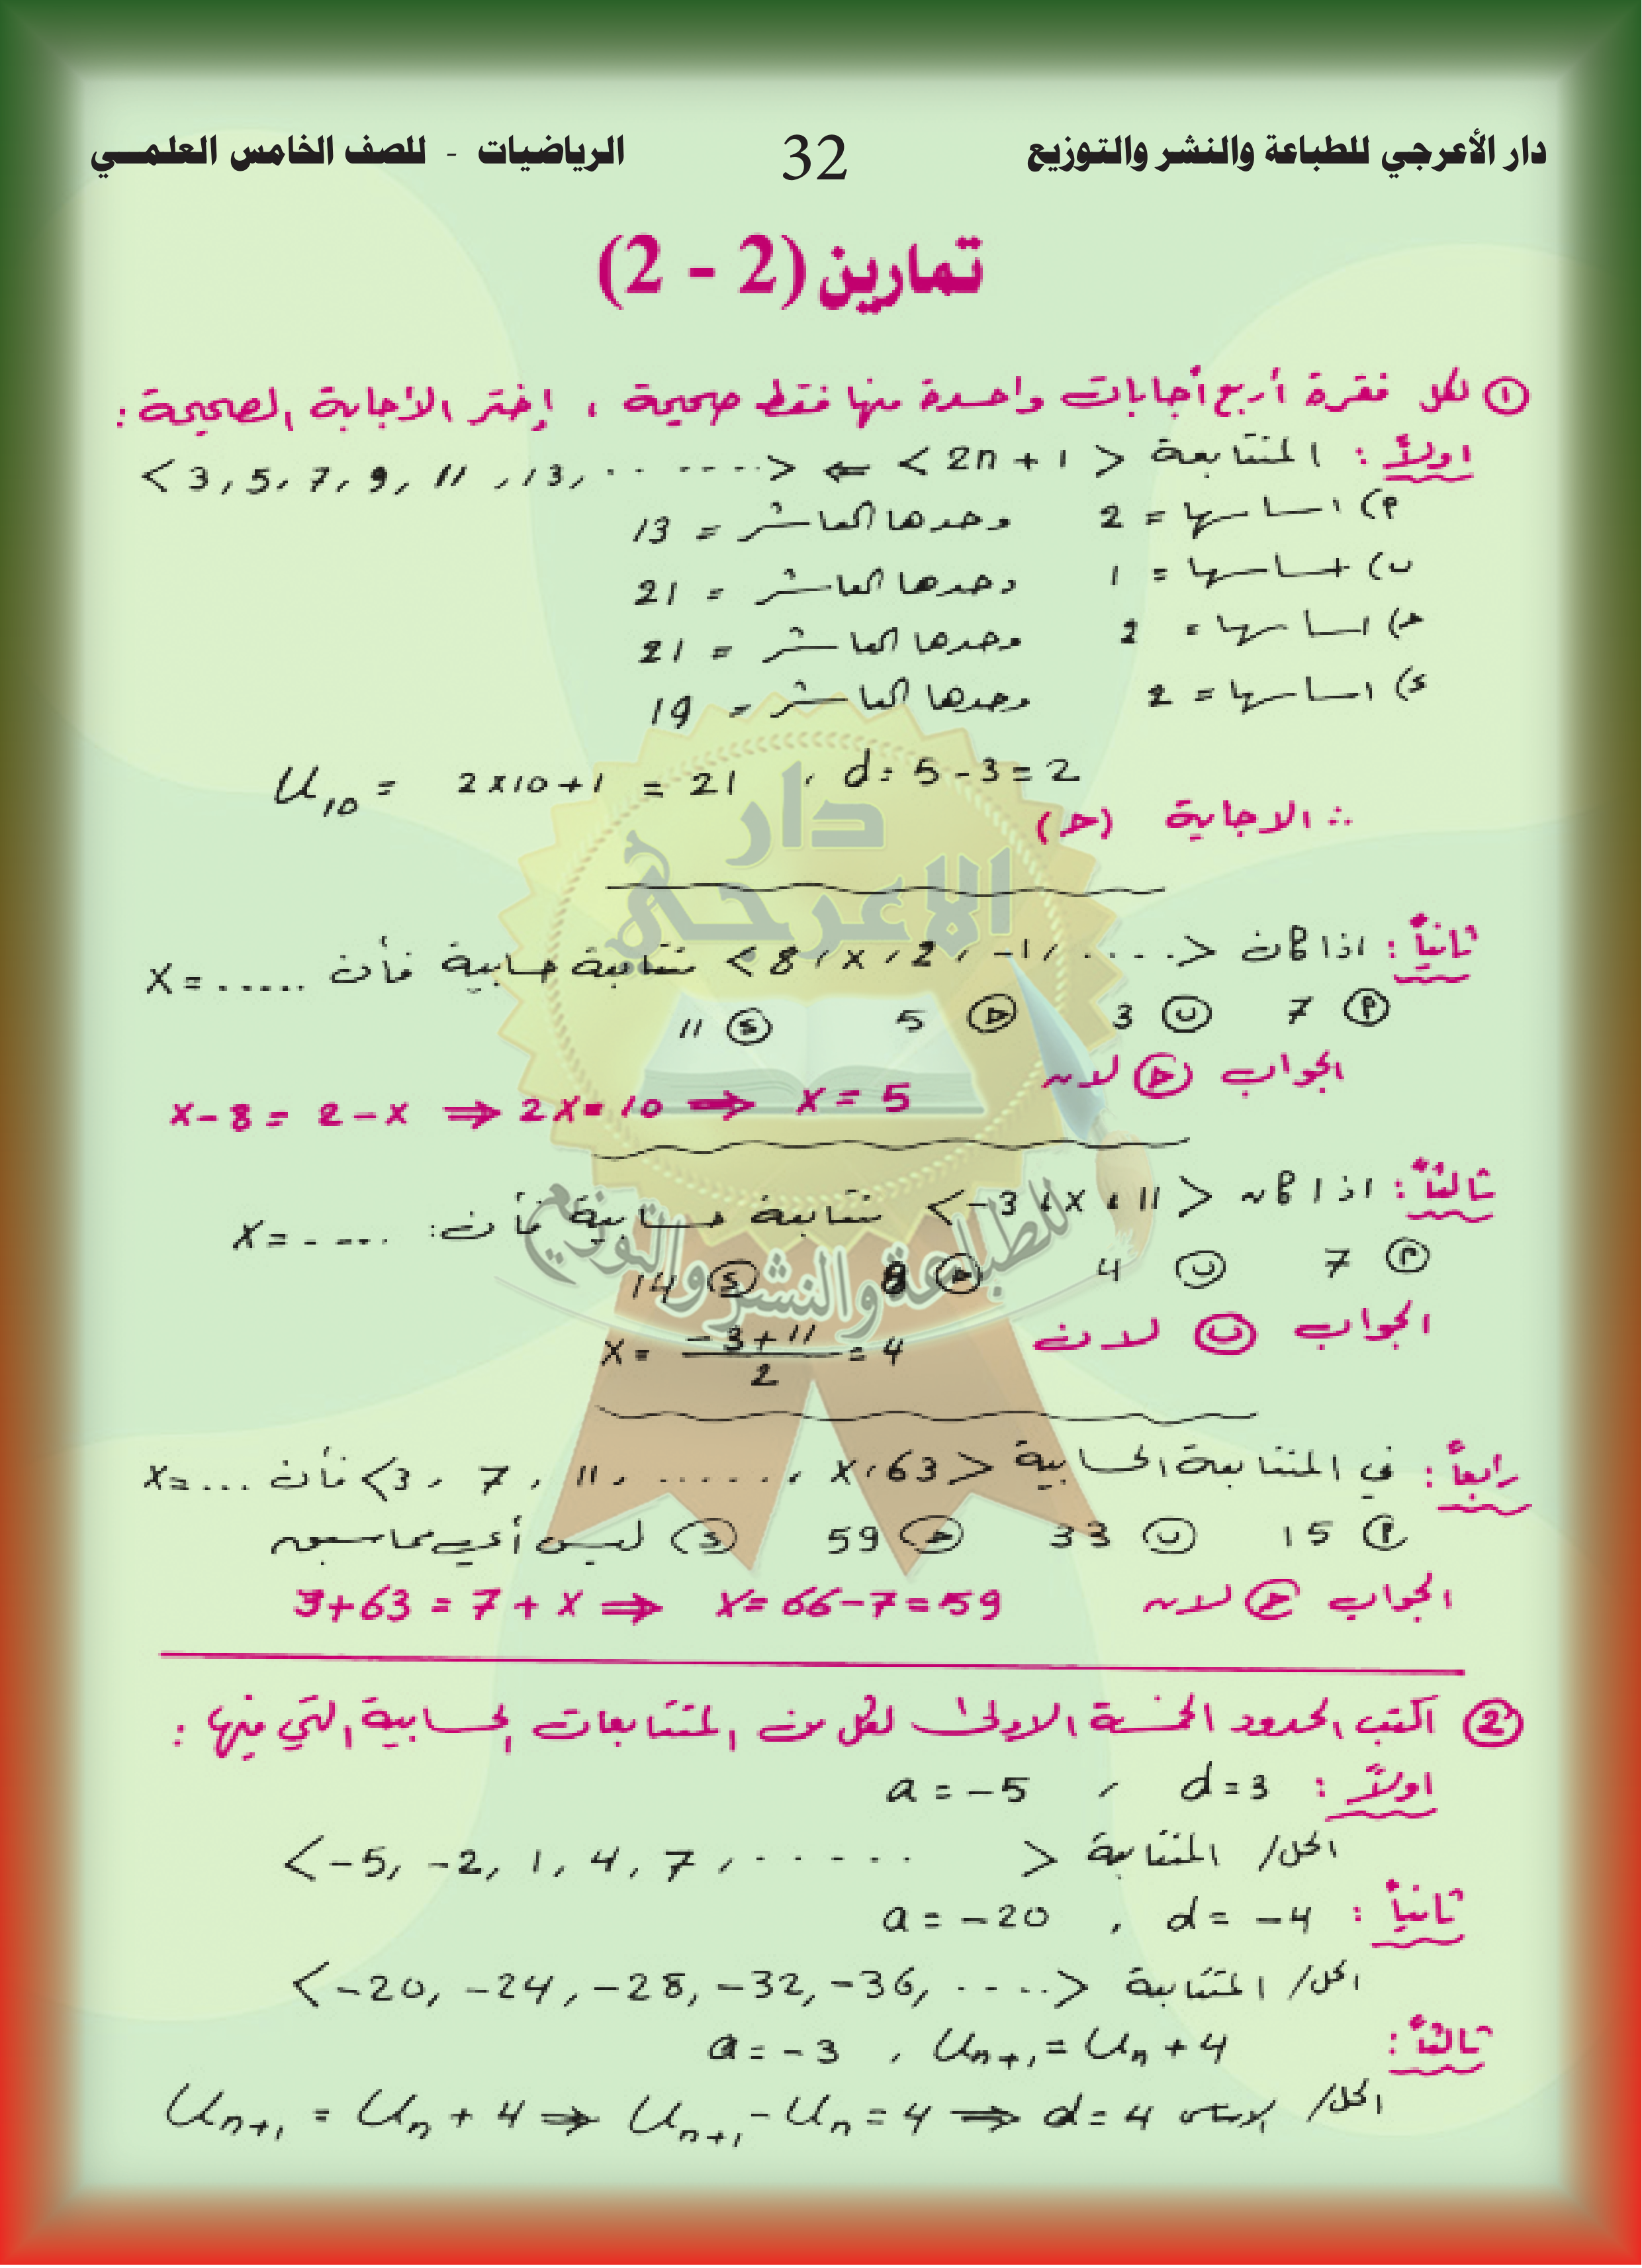 دار الأعرجي للطباعة والنشر والتوزيع 32 الرياضيات - للصف الخامس العلمــــي
تمارين (2 - 2)
① لكل فقرة أربع أجابات واحدة منها فقط صحيحة ، إختر الأجابة الصحيحة :
اولاً : المتتابعة <2n + 1> ⇐ <3, 5, 7, 9, 11, 13, ........>
أ) اساسها = 2 وحدها العاشر = 13
ب) اساسها = 1 وحدها العاشر = 21
ح) اساسها = 2 وحدها العاشر = 21
د) اساسها = 2 وحدها العاشر = 19
U₁₀ = 2×10+1 = 21 , d = 5 - 3 = 2
∴ الاجابة (ح)
دار
الاعرجي
ثانياً : اذا كان <8, x, 2, -1, .....> متتابعة حسابية فأن x = .....
أ 7 ب 3 ح 5 د 11
الجواب ح لان
x - 8 = 2 - x ⇒ 2x = 10 ⇒ x = 5
للطباعة والنشر والتوزيع
ثالثاً : اذا كان <-3, x, 11> متتابعة حسابية فأن : x = .....
أ 7 ب 4 ح 8 د 14
الجواب ب لان
x = (-3+11)/2 = 4
رابعاً : في المتتابعة الحسابية <3, 7, 11, ......, x, 63> فأن x = ...
أ 15 ب 33 ح 59 د ليس أي مما سبق
الجواب ح لان 3+63 = 7+x ⇒ x = 66-7 = 59
② اكتب الحدود الخمسة الاولى لكل من المتتابعات الحسابية التي فيها :
اولاً : a = -5 , d = 3
الحل/ المتتابعة <-5, -2, 1, 4, 7, ......>
ثانياً : a = -20 , d = -4
الحل/ المتتابعة <-20, -24, -28, -32, -36, ....>
ثالثاً : a = -3 , Uₙ₊₁ = Uₙ + 4
الحل/ الاساس Uₙ₊₁ = Uₙ + 4 ⇒ Uₙ₊₁ - Uₙ = 4 ⇒ d = 4